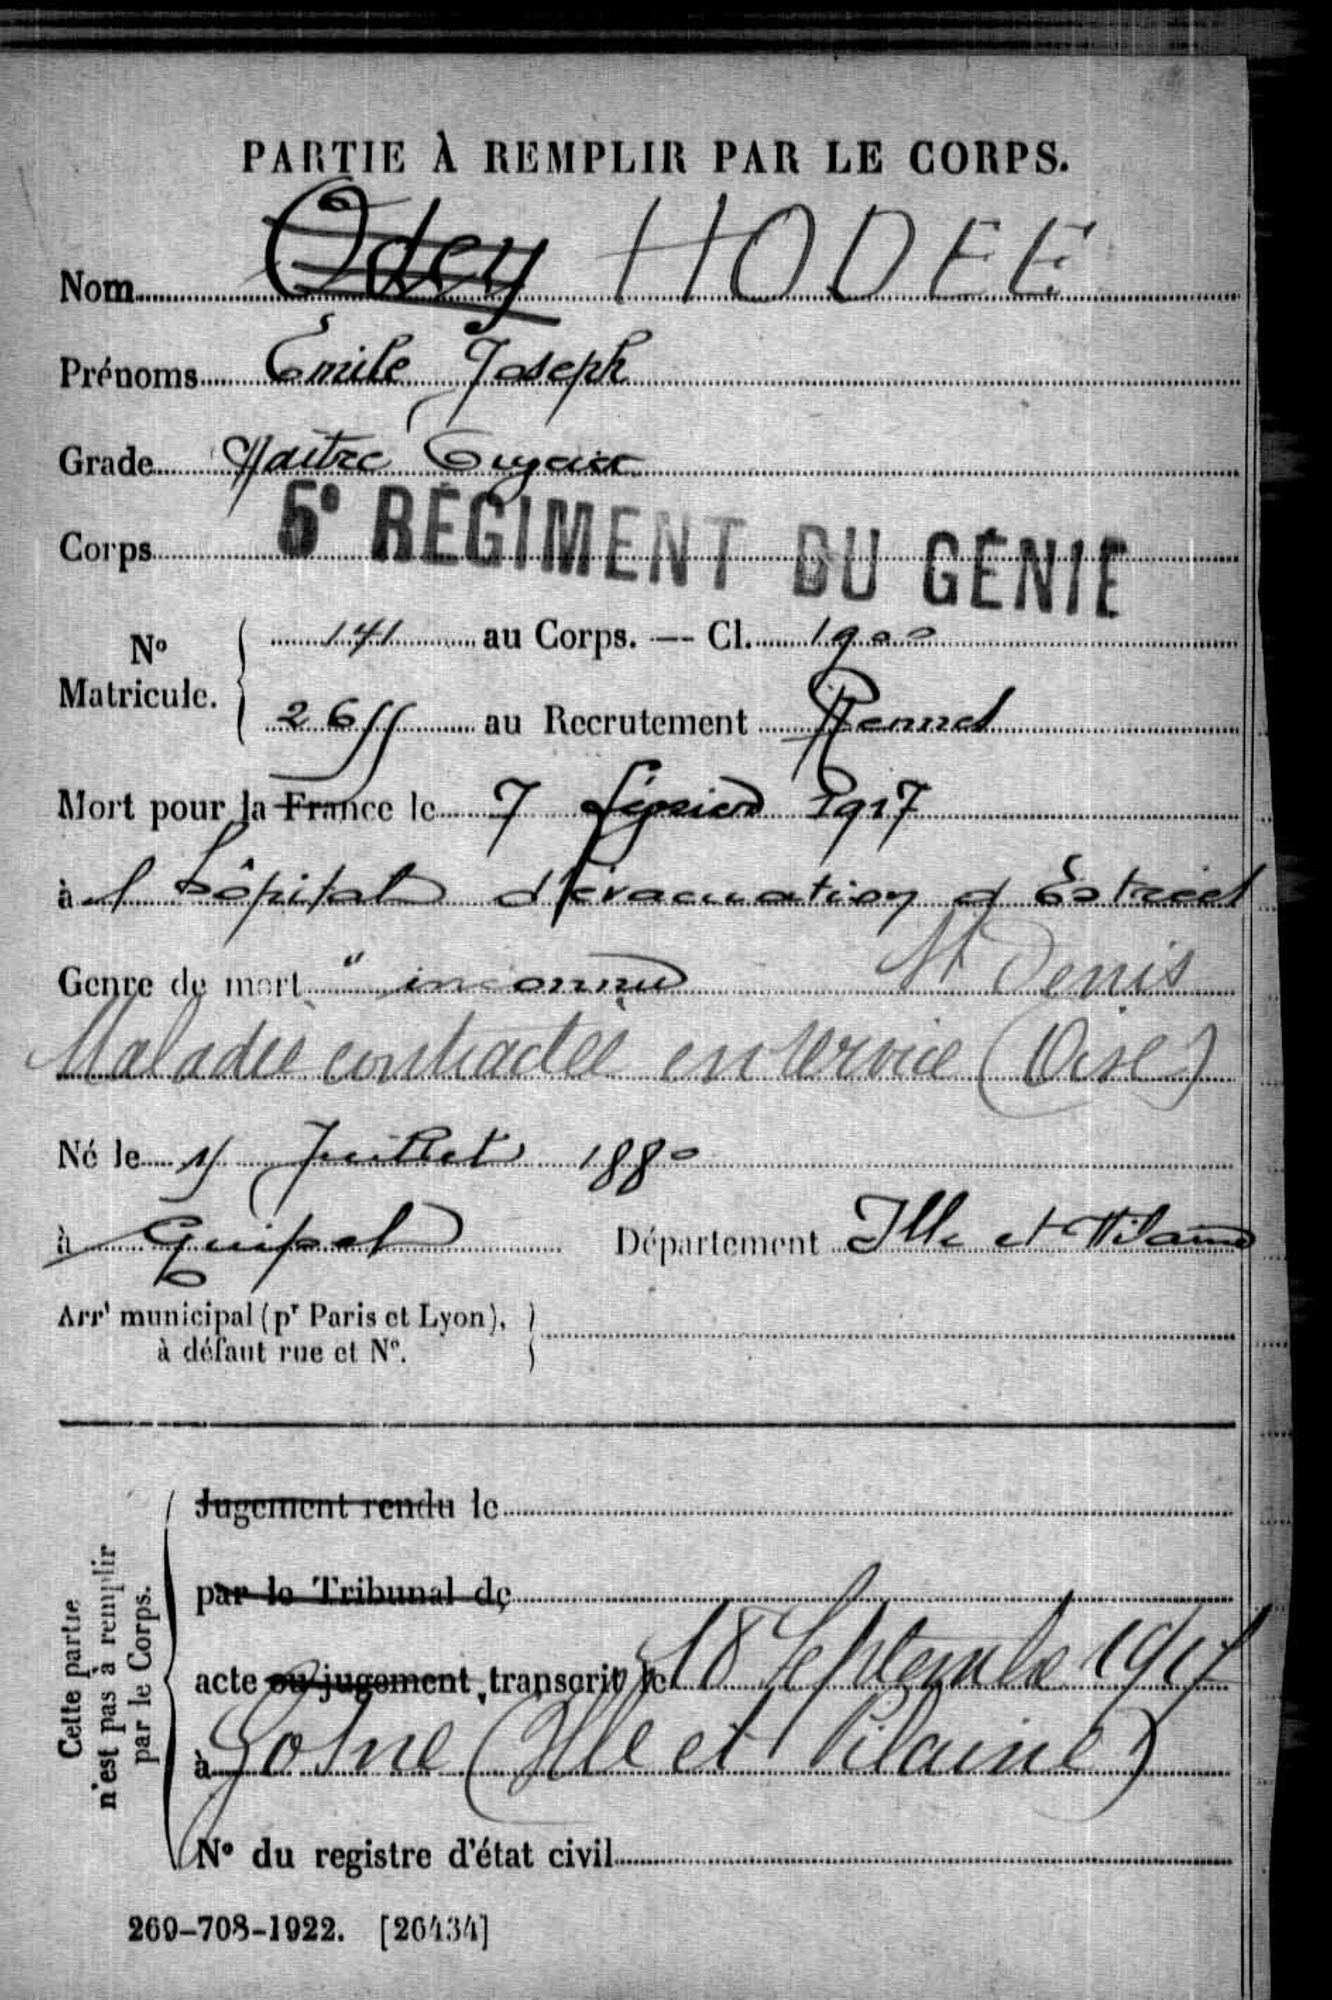 PARTIE À REMPLIR PAR LE CORPS.
Nom Odey HODEE
Prénoms Émile Joseph
Grade Maitre
Corps 5e RÉGIMENT DU GÉNIE
No Matricule. 141 au Corps. — Cl. 1900
2655 au Recrutement Rennes
Mort pour la France le 7 février 1917
à l'hôpital d'évacuation d'Estrées
Genre de mort " inconnu St Denis
Maladie contractée en service (Oise)
Né le Juillet 1880
à Guipel Département Ille et Vilaine
Arrt municipal (pr Paris et Lyon),
à défaut rue et No.
Cette partie
n'est pas à remplir
par le Corps.
Jugement rendu le
par le Tribunal de
acte ou jugement transcrit le 18 Septembre 1917
à Gosné (Ille et Vilaine)
No du registre d'état civil
269-708-1922. [26434]